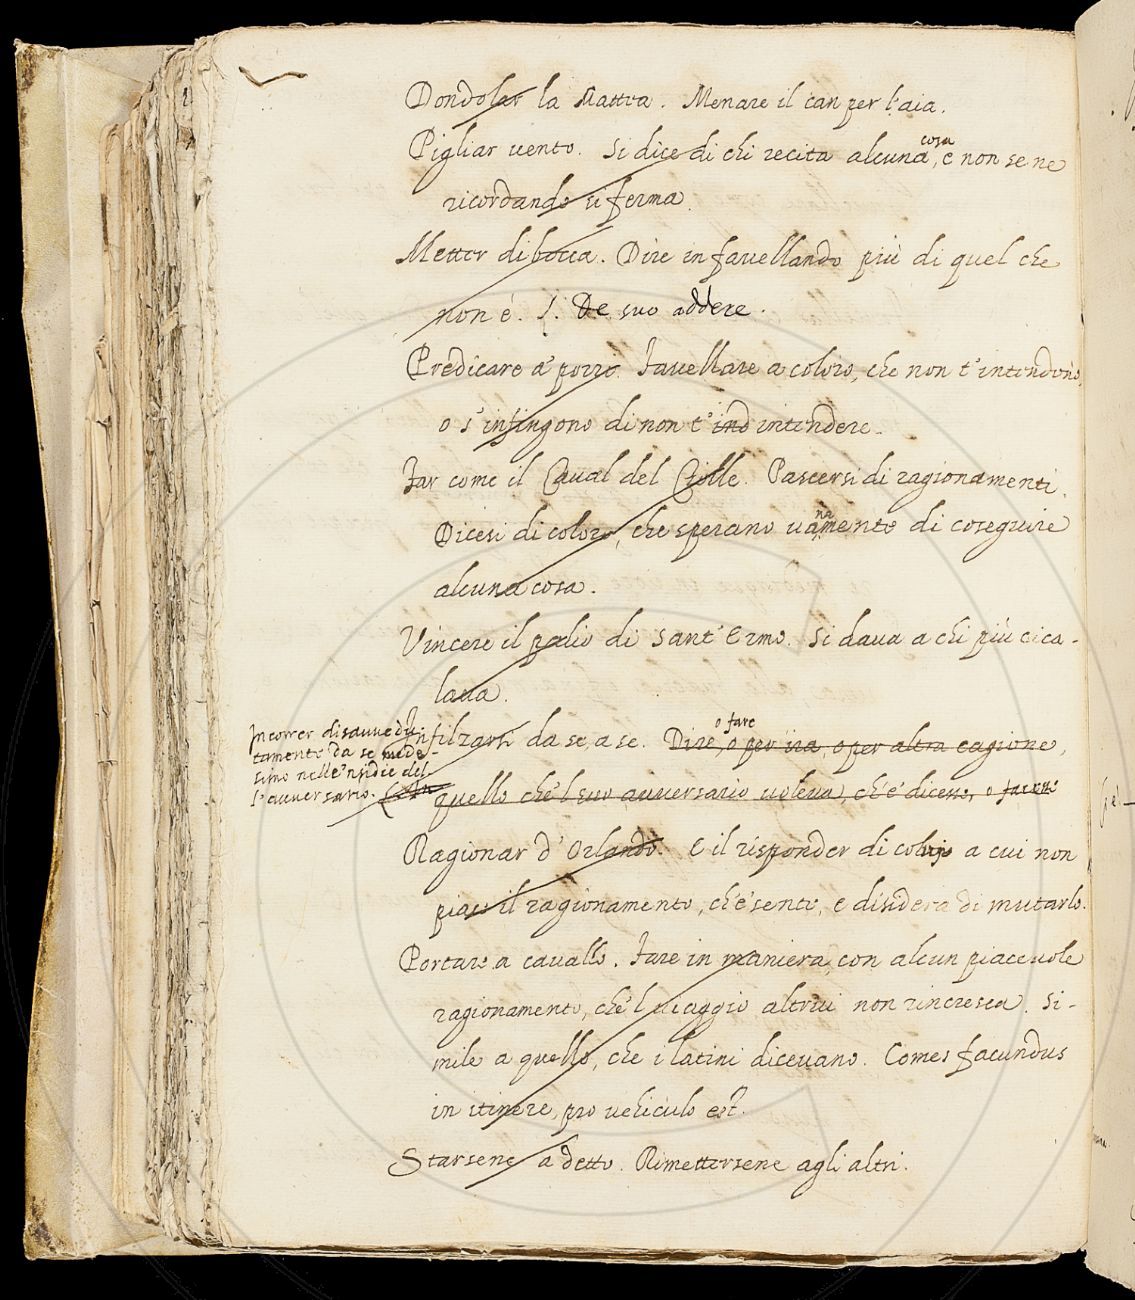 Dondolar la Mattea. Menare il can per l'aia.
Pigliar uento. Si dice di chi recita alcuna cosa, e non se ne
ricordando si ferma.
Metter di bocca. Dire in fauellando più di quel che
non é. S. De suo addere.
Predicare a' porri. Fauellare a coloro, che non t'intendono,
o s'infingono di non t'ind intendere.
Far come il Caual del Ciolle. Pascersi di ragionamenti.
Dicesi di coloro, che sperano uanamente di coseguire
alcuna cosa.
Vincere il palio di Sant'Ermo. Si daua a chi più cica-
laua.
Infilzarsi da se, a se. Dire, o fare o per ira, o per altra cagione,
quello che'l suo auuersario uoleua, ch'e' dicesse, o facesse
Incorrer disauuedu-
tamente da se mede-
simo nelle'nsidie del-
l'auuersario.
Ragionar d'Orlando. E il risponder di colui a cui non
piace il ragionamento, ch'e' sente, e disidera di mutarlo.
Portare a cauallo. Fare in maniera con alcun piaceuole
ragionamento, che'l uiaggio altrui non rincresca. Si-
mile a quello, che i latini diceuano. Comes facundus
in itinere, pro uehiculo est.
Starsene a detto. Rimettersene agli altri.